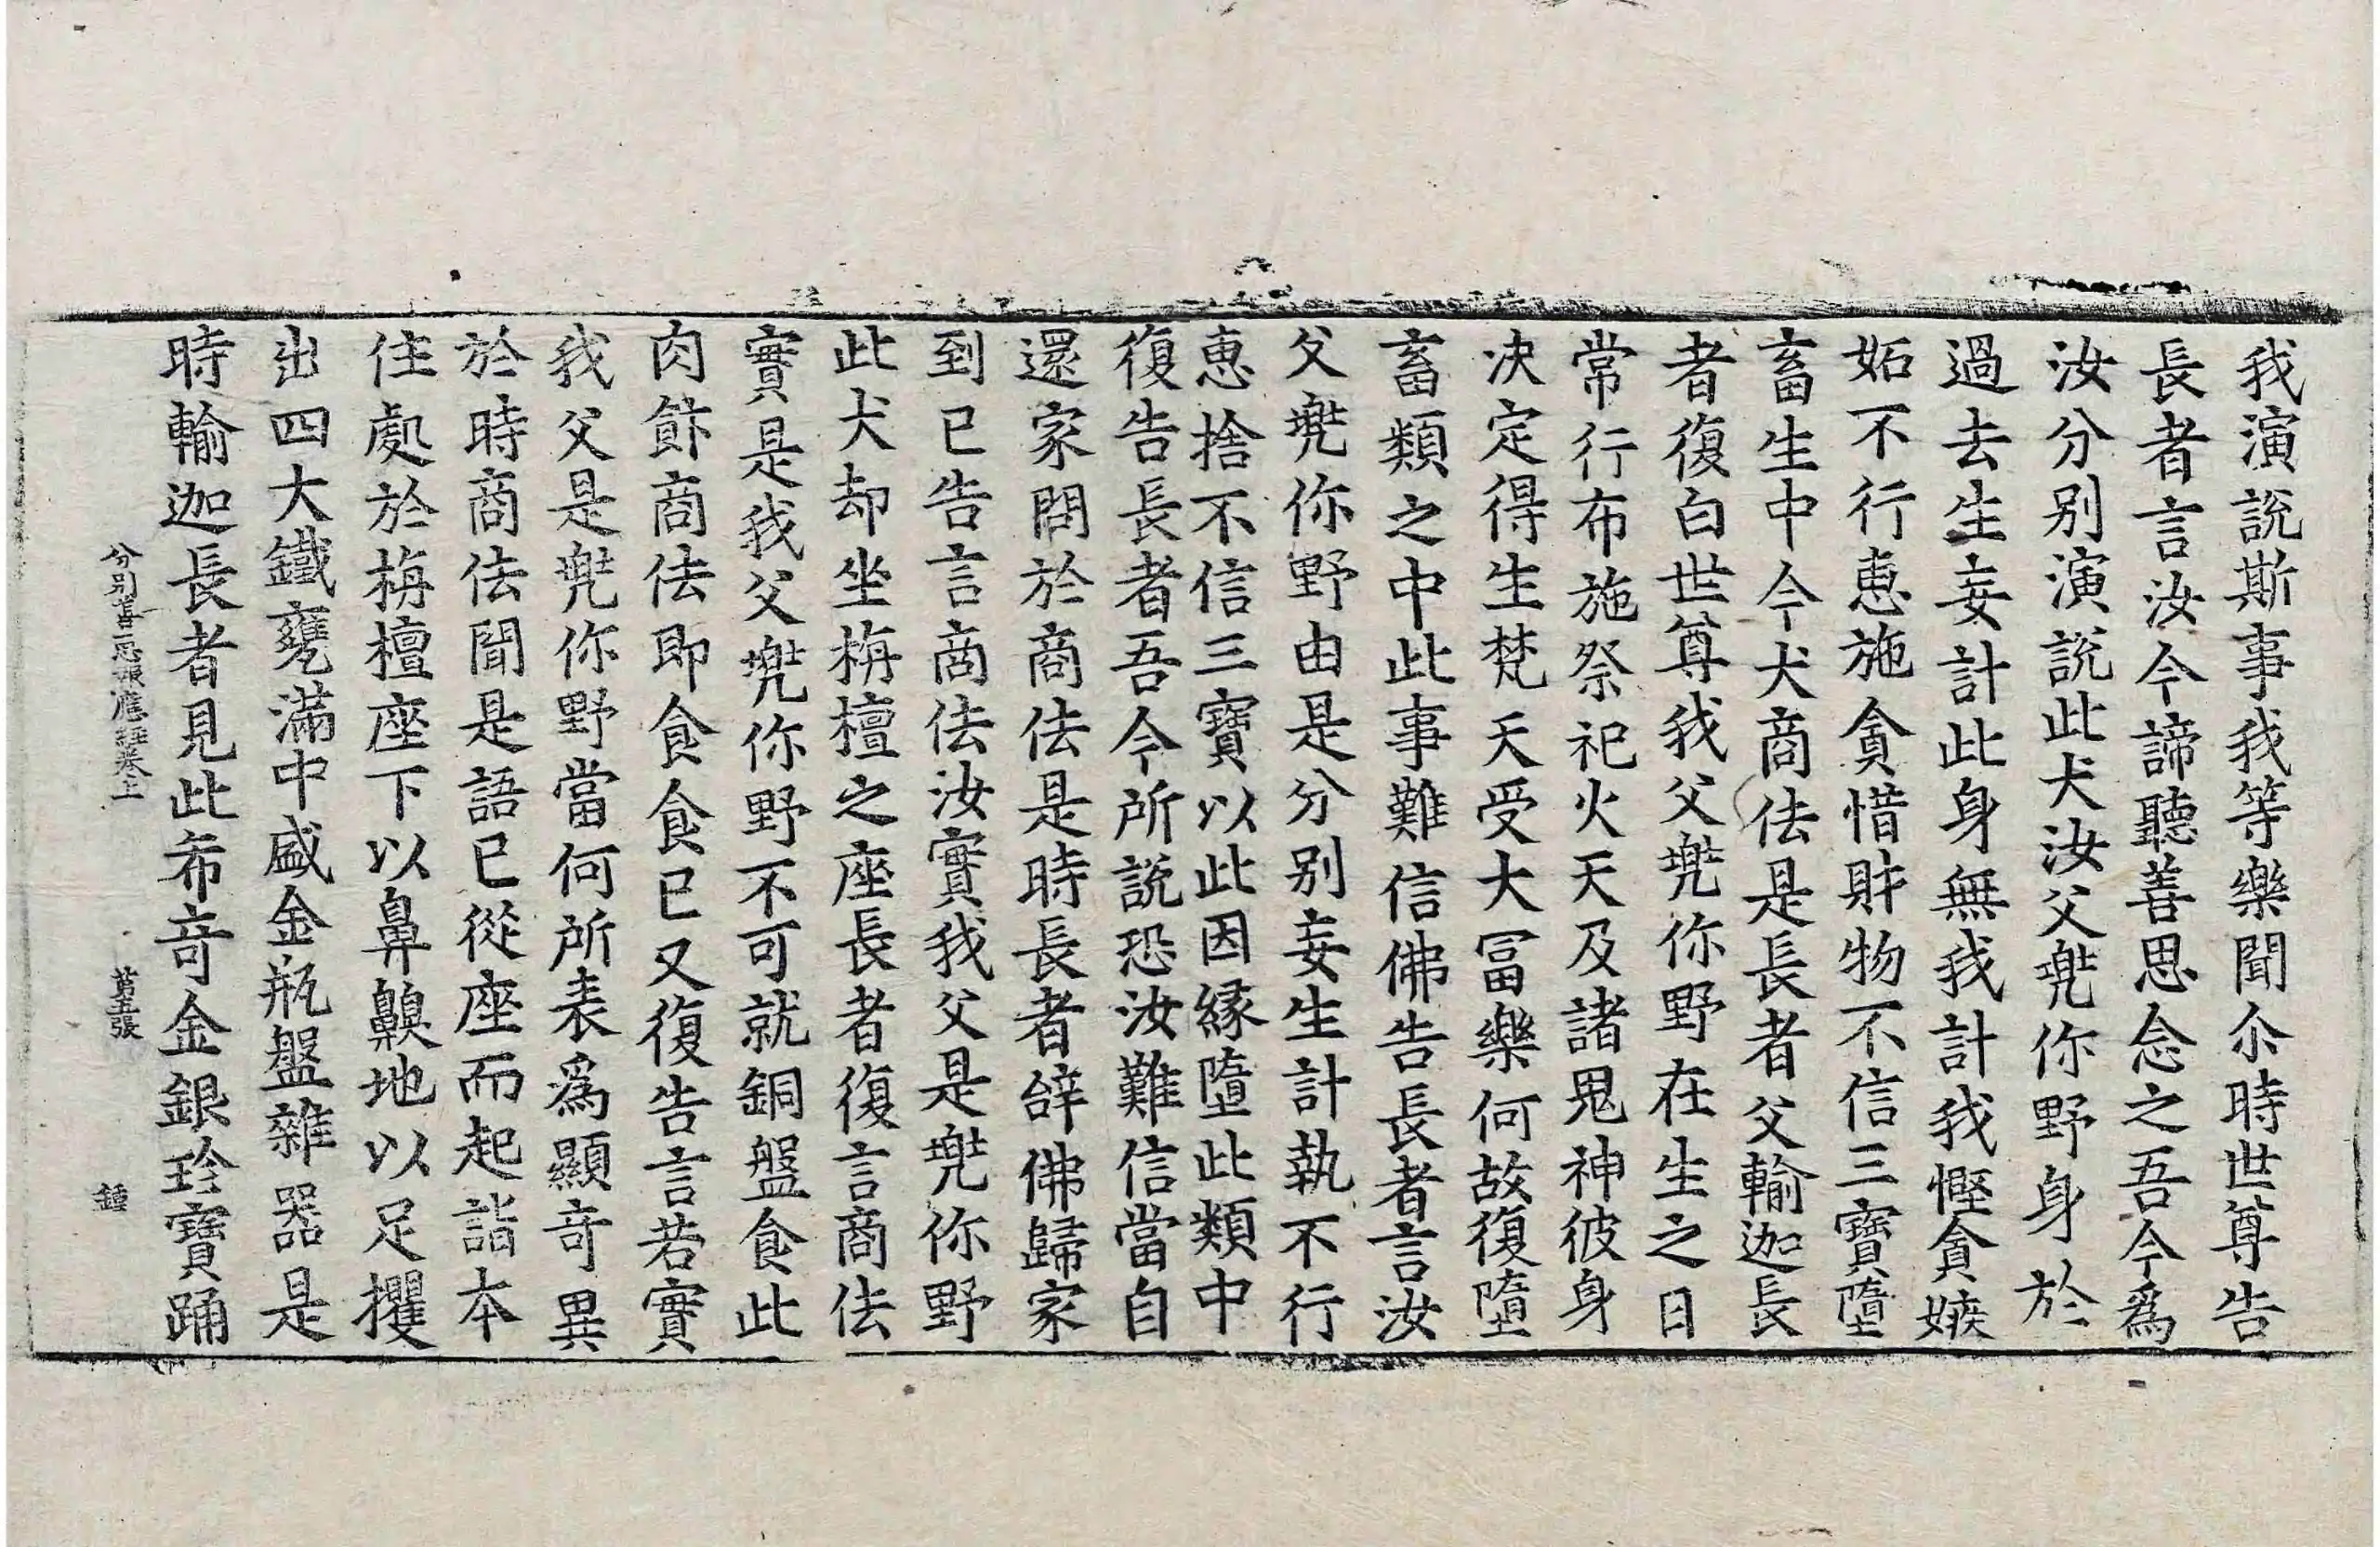 我演說斯事我等樂聞尒時世尊告
長者言汝今諦聽善思念之吾今爲
汝分別演說此犬汝父兠你野身於
過去生妄計此身無我計我慳貪嫉
妬不行惠施貪惜財物不信三寶墮
畜生中今犬商佉是長者父輸迦長
者復白世尊我父兠你野在生之日
常行布施祭祀火天及諸鬼神彼身
決定得生梵天受大冨樂何故復墮
畜類之中此事難信佛告長者言汝
父兠你野由是分別妄生計執不行
惠捨不信三寶以此因緣墮此類中
復告長者吾今所說恐汝難信當自
還家問於商佉是時長者辝佛歸家
到已告言商佉汝實我父是兠你野
此犬却坐栴檀之座長者復言商佉
實是我父兠你野不可就銅盤食此
肉飰商佉即食食已又復告言若實
我父是兠你野當何所表爲顯竒異
於時商佉聞是語已從座而起詣本
住處於栴檀座下以鼻齅地以足攫
出四大鐵甕滿中盛金瓶盤雜器是
時輸迦長者見此希竒金銀珍寶踊
分別善惡報應經卷上 第五張 鍾